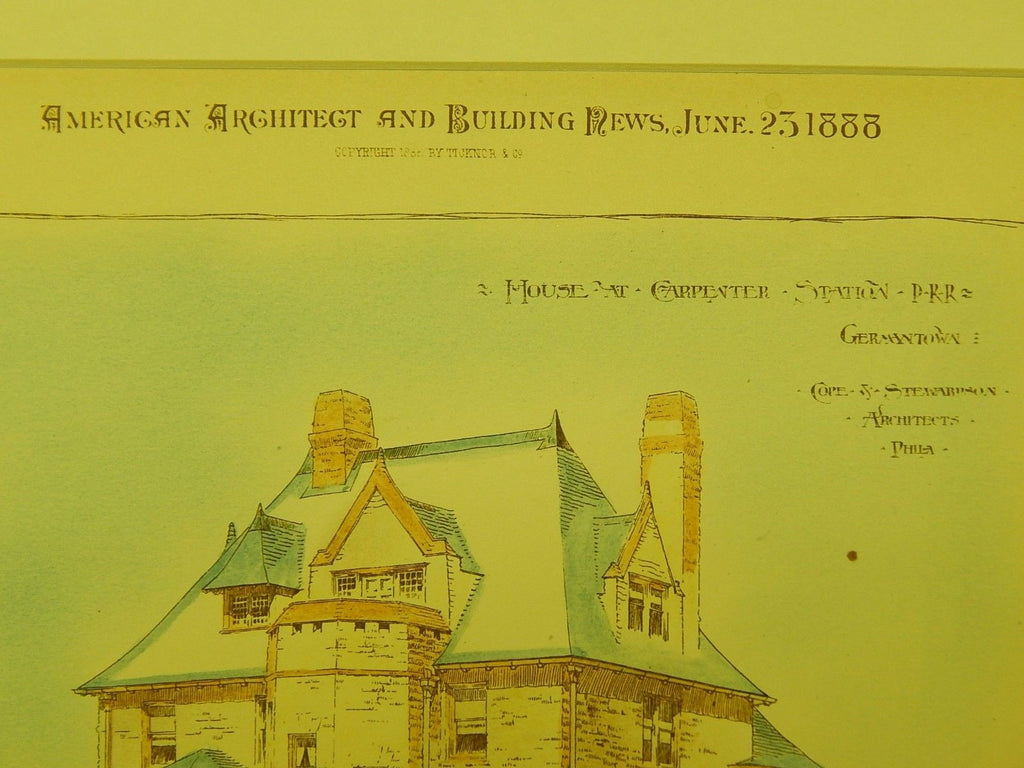 AMERICAN ARCHITECT AND BUILDING NEWS, JUNE. 23 1888
COPYRIGHT BY TICKNOR & CO
HOUSE AT - CARPENTER - STATION - P-R-R
GERMANTOWN
- COPE - & - STEWARDSON -
- ARCHITECTS -
- PHILA -